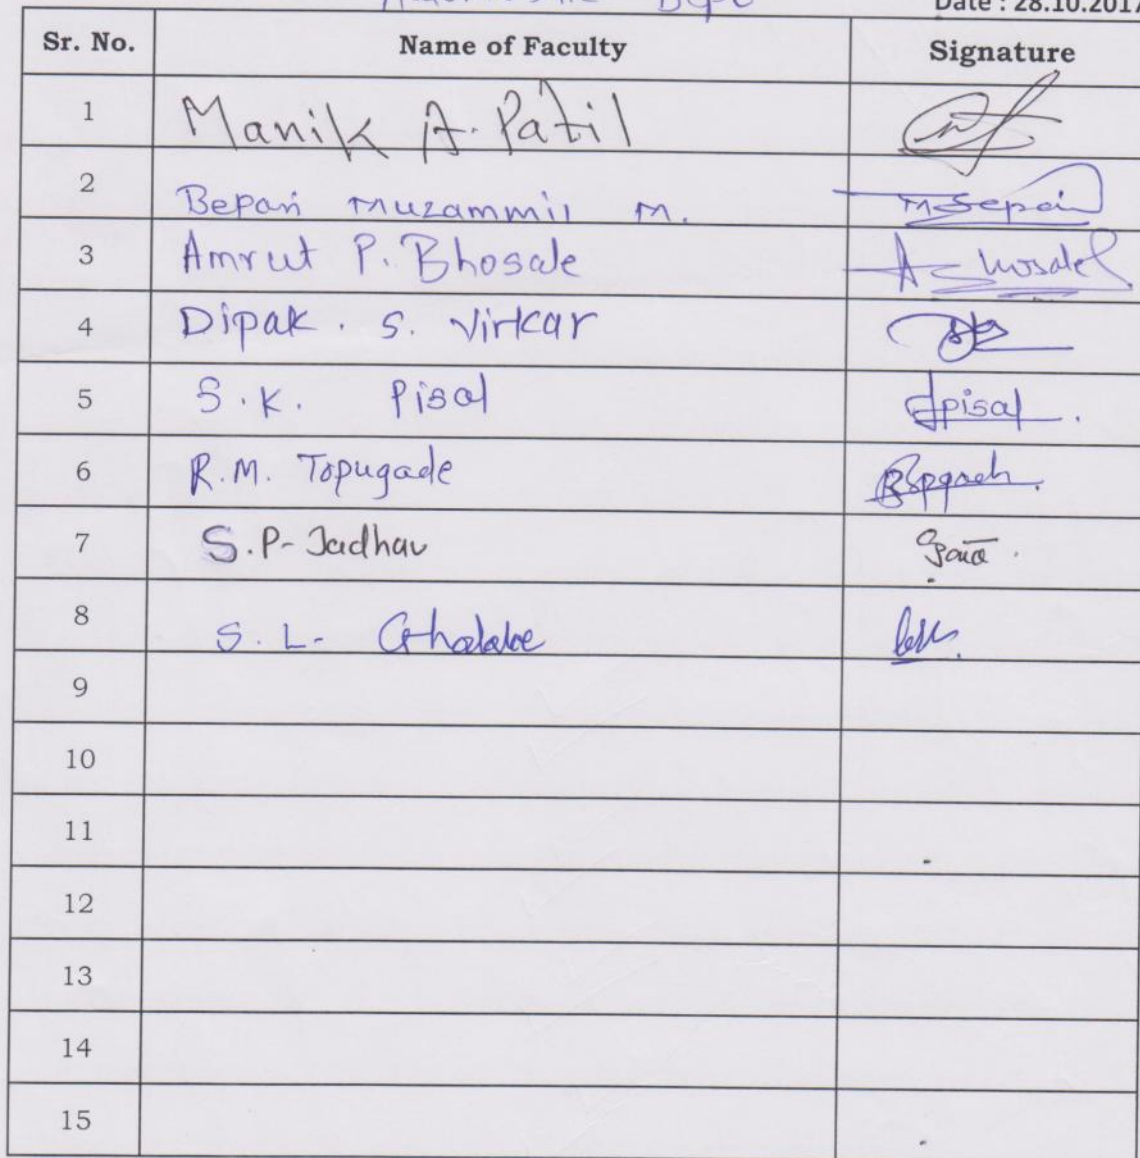 Dept
Date : 28.10.2017
Sr. No. Name of Faculty Signature
1 Manik A. Patil
2 Bepari Muzammil M. MBepari
3 Amrut P. Bhosale ABhosale
4 Dipak . S. Virkar
5 S.K. Pisal Spisal
6 R.M. Topugade
7 S.P- Jadhav
8 S. L-
9
10
11
12
13
14
15